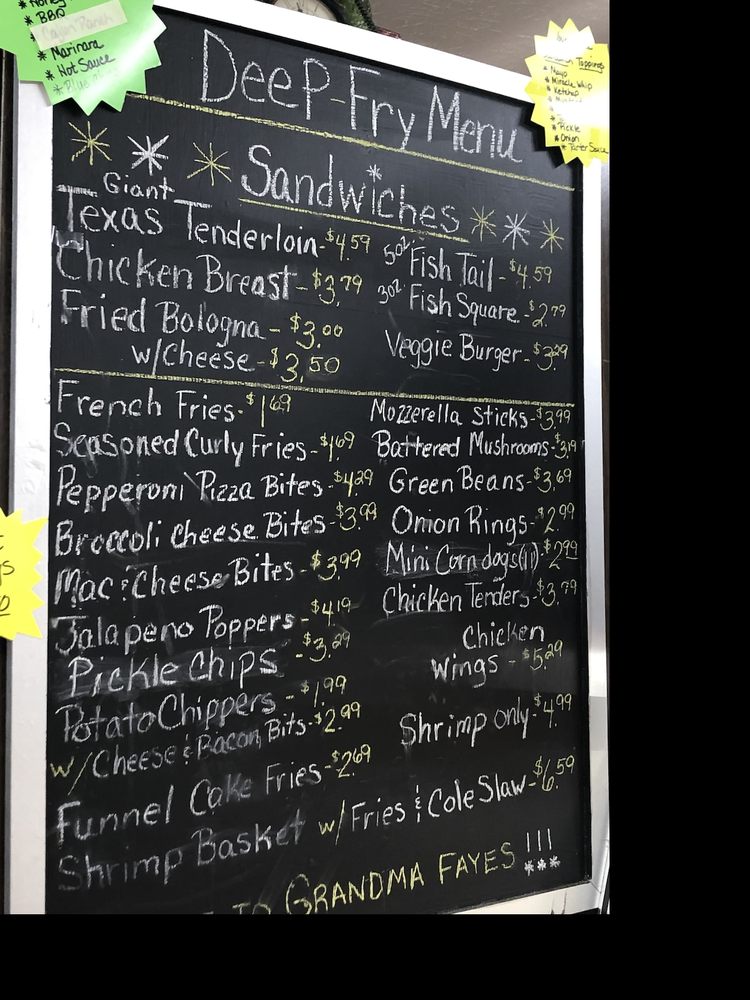 * Honey
* BBQ
* Cajun Ranch
* Marinara
* Hot Sauce
Toppings
* Mayo
* Miracle Whip
* Ketchup
* Pickle
* Onion
* Tarter Sauce
Deep-Fry Menu
* * * Sandwiches * * *
Giant
Texas Tenderloin-$4.59
Chicken Breast-$3.79
Fried Bologna-$3.00
w/Cheese-$3.50
5oz Fish Tail-$4.59
3oz Fish Square-$2.79
Veggie Burger-$3.29
French Fries-$1.69
Seasoned Curly Fries-$1.69
Pepperoni Pizza Bites-$4.29
Broccoli Cheese Bites-$3.99
Mac & Cheese Bites-$3.99
Jalapeno Poppers-$4.19
Pickle Chips-$3.29
Potato Chippers-$1.99
w/Cheese & Bacon Bits-$2.99
Funnel Cake Fries-$2.69
Shrimp Basket w/Fries & Cole Slaw-$6.59
Mozzerella Sticks-$3.99
Battered Mushrooms-$3.19
Green Beans-$3.69
Onion Rings-$2.99
Mini Corndogs(11)-$2.99
Chicken Tenders-$3.79
Chicken
Wings-$5.29
Shrimp only-$4.99
TO GRANDMA FAYES !!!